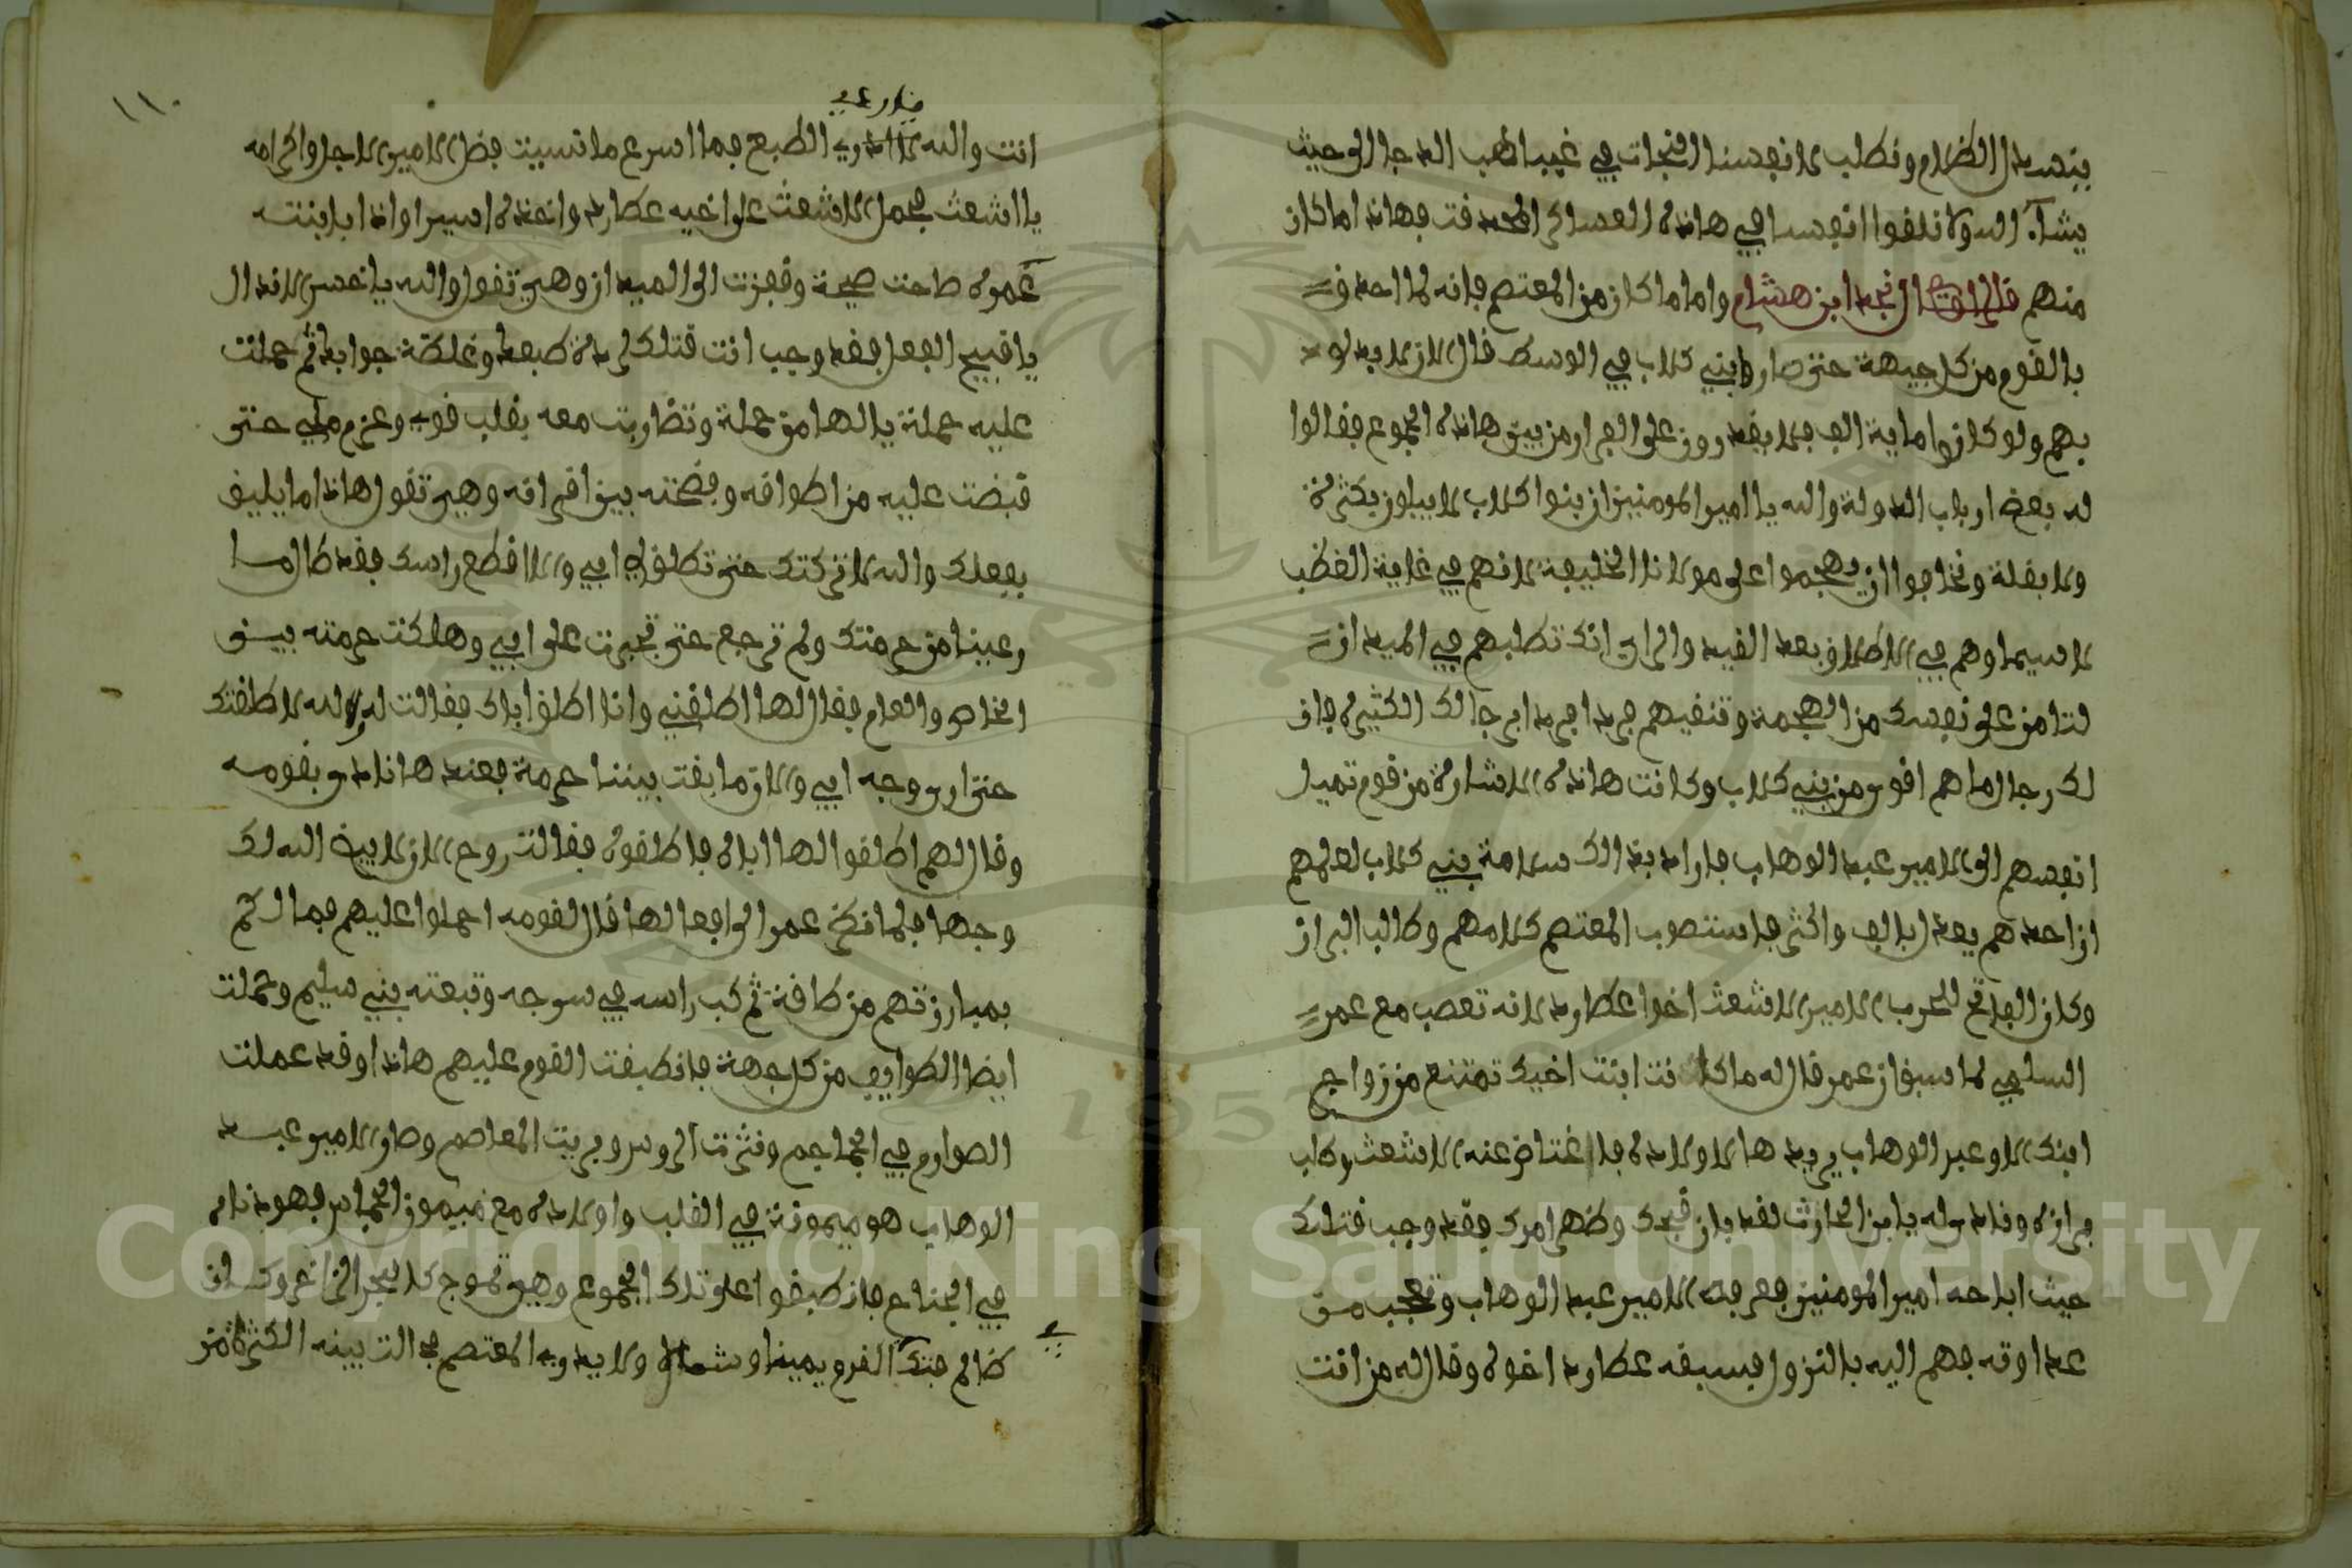 ينسدل الظلام ونطلب لانفسنا النجات في غيبا هب الدجا الى حيث
يشآء الله ولا نلقوا انفسنا في هاذه العساكر المحدقت فهاذا ما كان
منهم قال الراوي نجد ابن هشام واما ما كان من المعتصم فانه لما احدق
بالقوم من كل جيهة حتى صاروا بني كلاب في الوسط قال الان لابد لو
بهم ولو كانوا ماية الف فلا يقدرون على الفرار من بين هاذه الجموع فقالوا
له بعض ارباب الدولة والله يا امير المومنين ان بنوا كلاب لا يبلون بكثرة
ولا بقلة ونخافوا ان يهجموا على مولانا الخليفة لانهم في غاية الغظب
لا سيما وهم في الاطلاق بعد القيد والراي انك تطلبهم في الميدان
لتامن على نفسك من الهجمة وتنفيهم فردا فردا برجالك الكثيرة فان
لك رجالا ما هم اقوى من بني كلاب وكانت هاذه الاشارة من قوم تميل
انفسهم الى الامير عبد الوهاب فارادو بذالك سلامة بني كلاب لعلمهم
ان احدهم يعد ابالف واكثر فاستصوب المعتصم كلامهم وطالب البران
وكان الفاتح للحرب الامير الاشعث اخوا عطارد لانه تعصب مع عمر
السلمي لما سبق ان عمر قال له ما كانت ابنت اخيك تمتنع من زواج
ابنك الا وعبد الوهاب يريدها لاولاده فاغتاض عنه الاشعث وطلب
برازه وناداه وله يا بن الحارث لقد بان قبحك وظهر امرك فقد وجب قتلك
حيث اباحه امير المومنين فعرفه الامير عبد الوهاب وتعجب من
عداوته فهم اليه بالنزول فسبقه عطارد اخوه وقال له من انت
غدار عى
انت والله الطبع فما اسرع ما نسيت فضل الامير الاجل واكرامه
يا اشعث فحمل الاشعث على اخيه عطارد واخذه اسيرا واذا بابنته
عمره صاحت صيحة وقفزت الى الميدان وهي تقول والله يا اخس الانذال
يا قبيح الفعل فقد وجب انت قتلك لرداة طبعك وغلظة جوابك ثم حملت
عليه حملة يالها من حملة وتضاربت معه بقلب قوي وعزم ملي حتى
قبضت عليه من اطواقه وفضحته بين اقرانه وهي تقول هاذا ما يليق
بفعلك والله لا تركتك حتى تطلق لي ابي والا اقطع راسك فقد طال ما
رعينا من حرمتك ولم ترجع حتى تجبرت على ابي وهلكت حرمته بين
الخاص والعام فقال لها اطلقني وانا اطلق اباك فقالت له والله لا طلقتك
حتى ارى وجه ابي والان ما بقت بيننا حرمة فعند هانادى بقومه
وقال لهم اطلقوا لها اباه فاطلقوه فقالت روح الان لا بيض الله لك
وجها فلما نظر عمر الى افعالها قال لقومه احملوا عليهم فما لكم
بمبارزتهم من طاقة ثم كب راسه في سرجه وتبعته بني سليم وحملت
ايضا الطوايف من كل جهة فانطبقت القوم عليهم هاذا وقد عملت
الصوارم في الجماجم ونثرت الروس وبريت المعاصم وصار الامير عبد
الوهاب هو وميمونة في القلب واولاده مع ميمون الجاس فهوبذاله
في الجناح فانطبقوا على تلك الجموع وهي تموج كالبحر الزاخر وكان
ظالم فتك القرم يمينا وشمالا ولا يدري المعتصم فحالت بينه الكثرة من